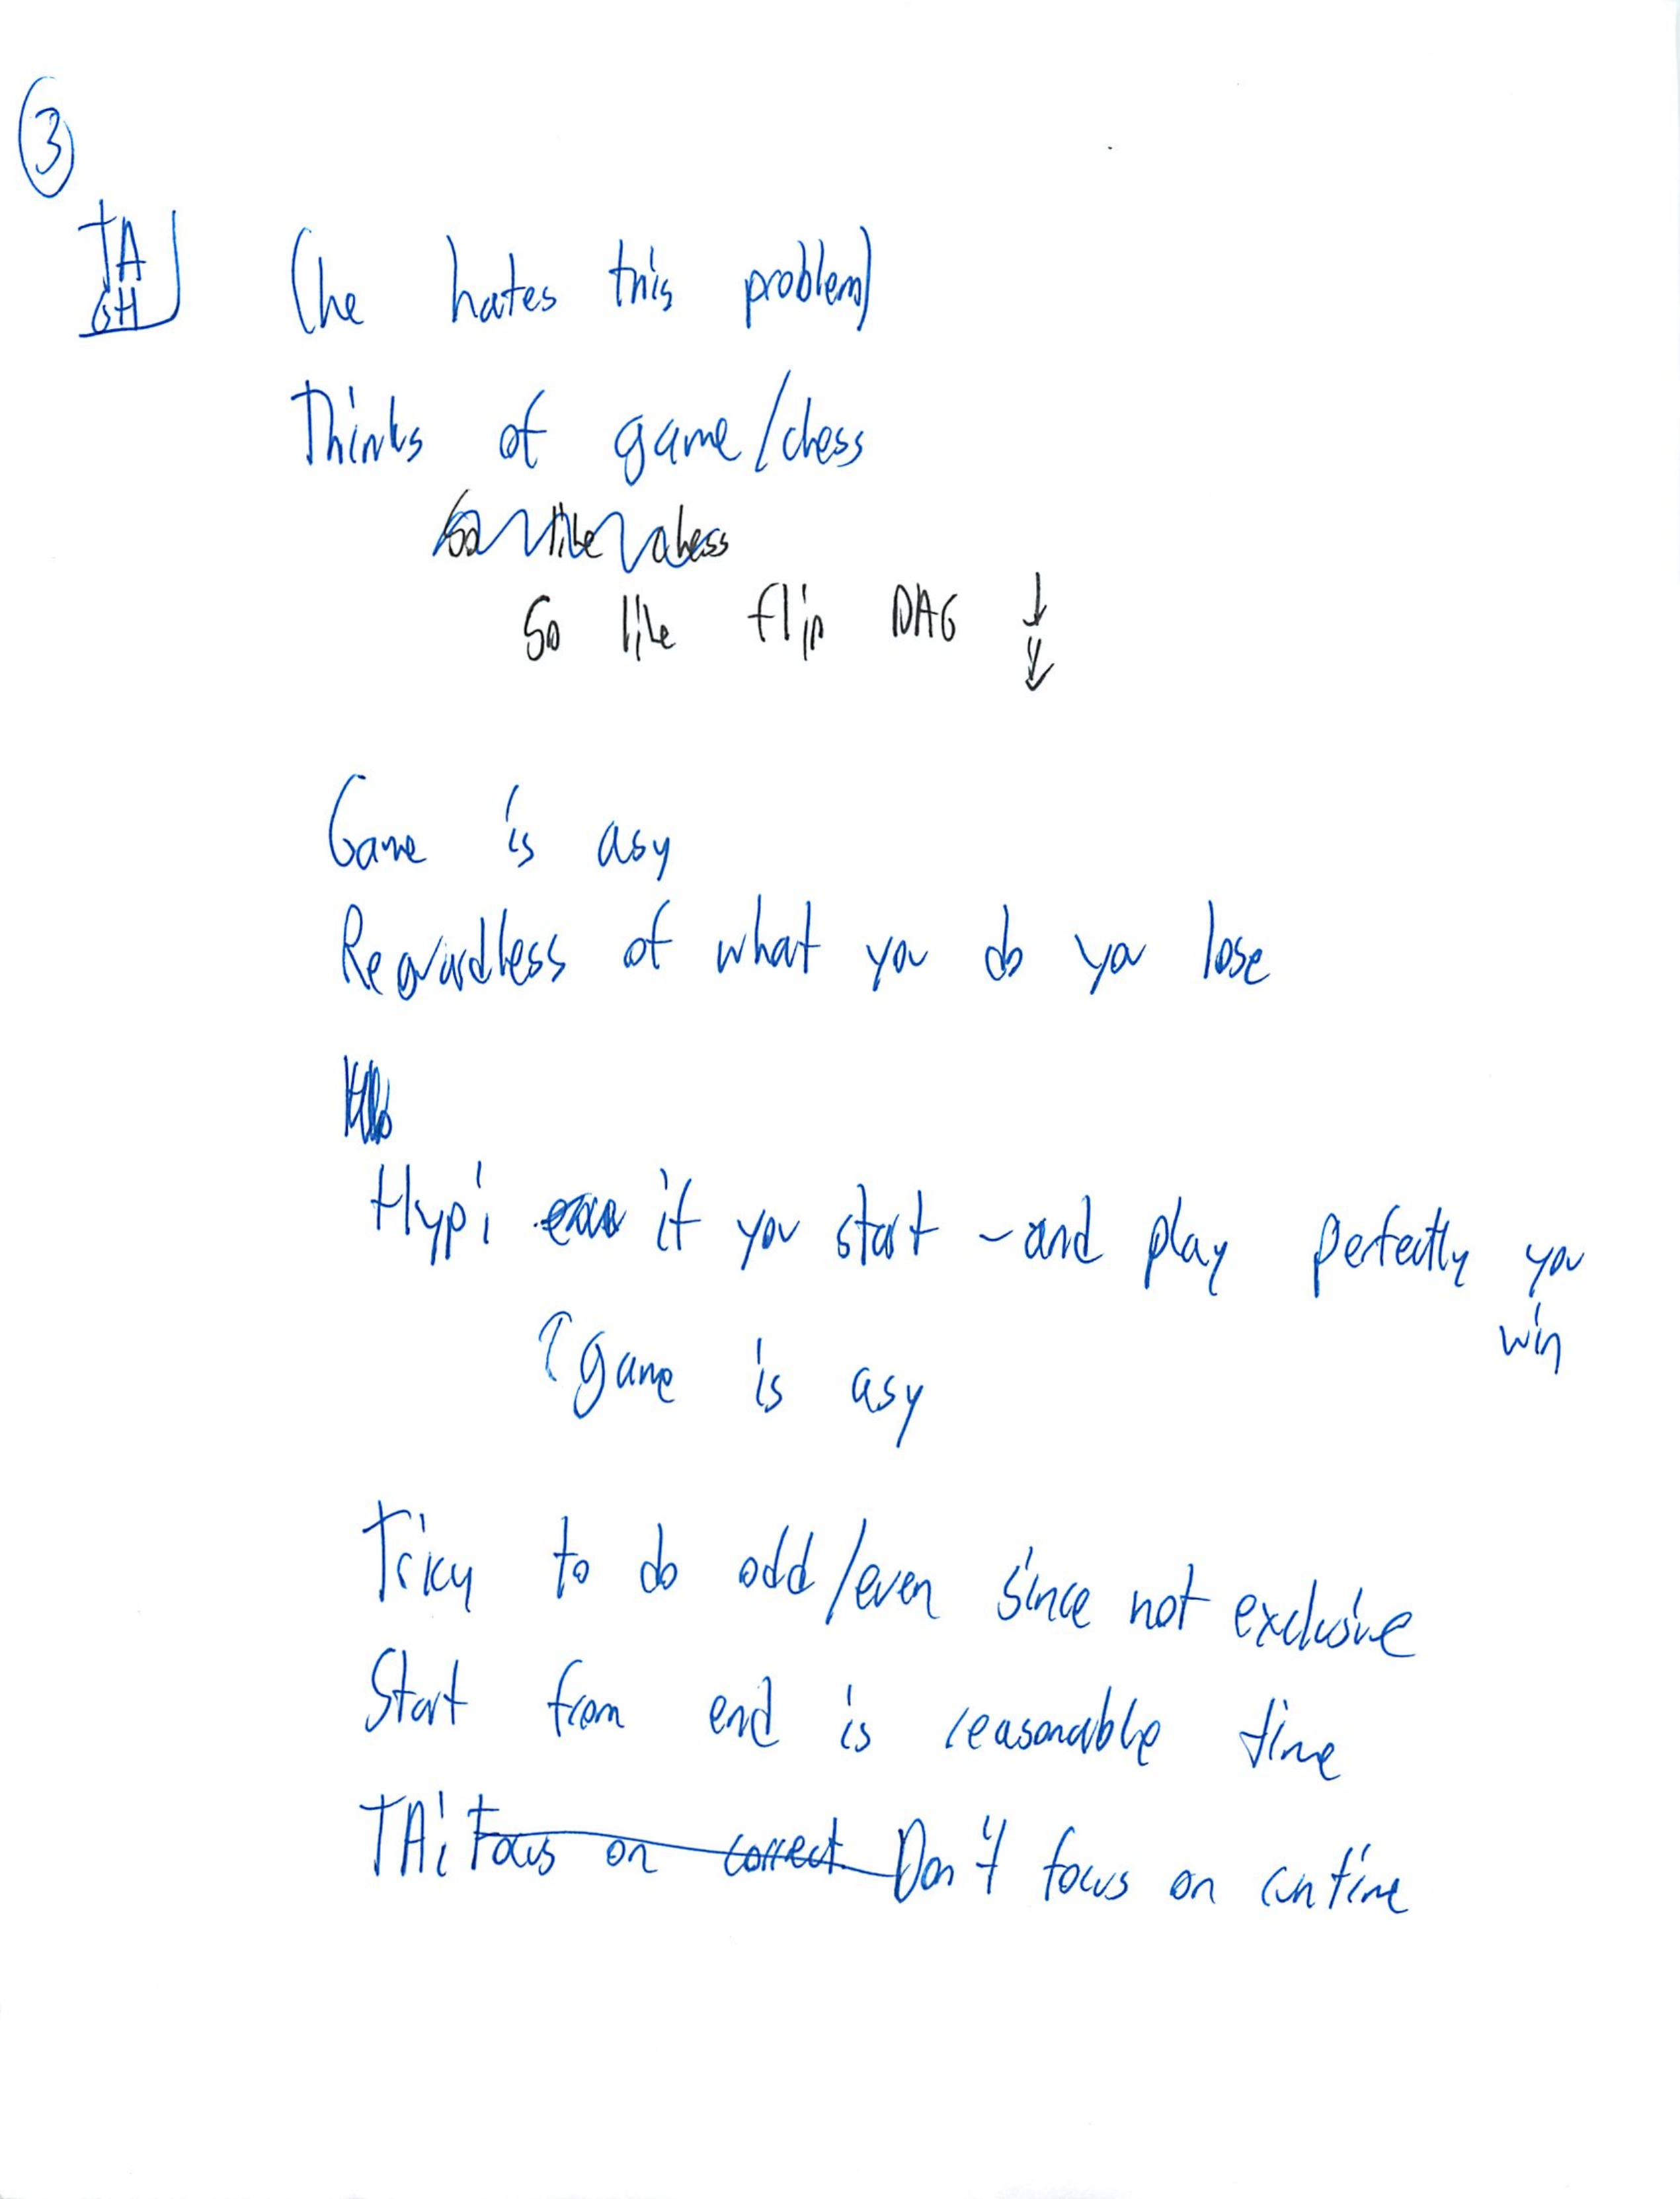 3
TA
OH
(he hates this problem)
Thinks of game/chess
So like chess
So like flip DAG ↓
↓
Game is asy
Regardless of what you do you lose
Hyp: if you start - and play perfectly you
win
↑ game is asy
Tricy to do odd/even since not exclusive
Start from end is reasonable time
TA: Focus on correct Don't focus on runtime